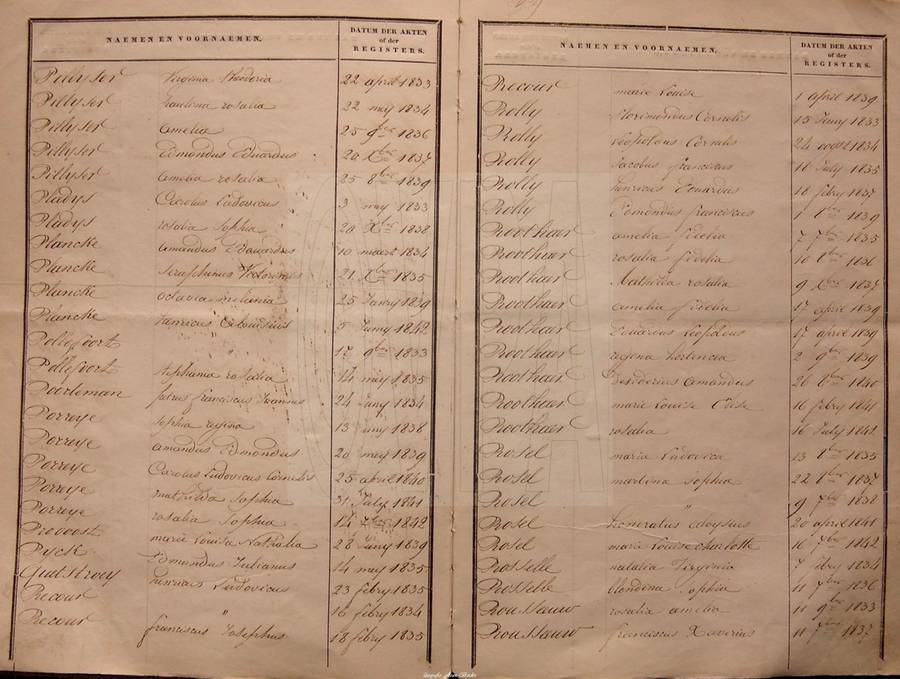 NAEMEN EN VOORNAEMEN. DATUM DER AKTEN of der REGISTERS.
Pillyser Virginia theodoria 22 april 1833
Pillyser paulina rosalia 22 mey 1834
Pillyser amelia 25 9bre 1836
Pillyser Edmondus Eduardus 20 Xbre 1837
Pillyser amelia rosalia 25 8bre 1839
Pladys Carolus Ludovicus 3 mey 1833
Pladys rosalia Sophia 20 Xbre 1838
Plancke amandus Eduardus 10 maert 1834
Plancke Seraphinus 21 Xbre 1835
Plancke octavia melania 25 Janry 1839
Plancke henricus 5 Juny 1842
17 9bre 1833
Stephania rosalia 14 mey 1835
Poorteman petrus franciscus Joannes 24 Juny 1834
Porreye Sophia regina 13 1838
Porreye amandus Edmondus 20 mey 1839
Porreye Carolus Ludovicus Cornelis 25 april 1840
Porreye mathilda Sophia 31 July 1841
Porreye rosalia Sophia 14 1842
Provoost marie Louisa Nathalia 28 Juny 1839
Pyck Edmondus Julianus 14 mey 1835
henricus Ludovicus 23 febry 1835
Recour " 16 febry 1834
Recour franciscus Josephus 18 febry 1835
NAEMEN EN VOORNAEMEN. DATUM DER AKTEN of der REGISTERS.
Recour marie Louise 1 april 1839
Rolly florimondus Cornelis 15 Juny 1833
Rolly Leopoldus Cornelis 24 oost 1834
Rolly Jacobus franciscus 18 July 1835
Rolly henricus Eduardus 18 febry 1837
Rolly Edmondus franciscus 1 8bre 1839
Roothaer amelia fidelia 7 7bre 1835
Roothaer rosalia fidelia 10 8bre 1836
Roothaer Mathilda rosalia 9 Xbre 1837
Roothaer amelia fidelia 17 april 1839
Roothaer Eduardus Leopoldus 17 april 1839
Roothaer regina hortencia 2 9bre 1839
Roothaer desiderius amandus 26 8bre 1840
Roothaer marie Louise 16 febry 1841
Roothaer rosalia 16 July 1842
Rosel maria Ludovica 13 8bre 1835
Rosel Sophia 22 8bre 1837
Rosel " 9 7bre 1838
Rosel honoratus aloysius 20 april 1841
Rosel marie Louise charlotte 16 7bre 1842
Rosselle natalia Virginia 7 febry 1834
Rosselle blondina Sophia 11 7bre 1836
Rousseeuw rosalia amelia 11 9bre 1833
Rousseeuw franciscus Xaverius 11 7bre 1837